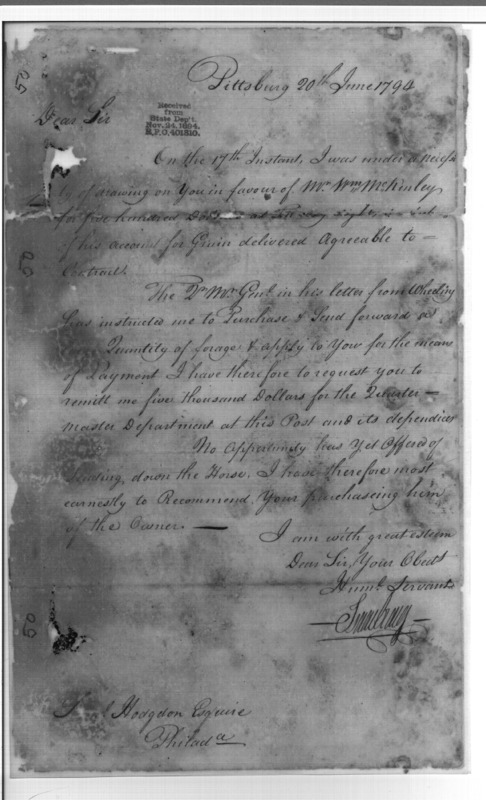 Pittsburg 20th June 1794
Dear Sir
Received
from
State Dep't.
Nov. 24, 1894.
R.P.O. 401810.
On the 17th Instant, I was under a necess
ty of drawing on You in favour of Mr. Wm McKinley
for five hundred Doll at Sight, is
of his account for Grain delivered Agreeable to =
Contract.
The Qr. Mr. Genl. in his letter from Wheeling
has instructed me to Purchase & Send forward
Quantity of forage & Apply to You for the means
of Payment I have therefore to request you to
remitt me five thousand Dollars for the Quarter —
master Department at this Post and its dependices
No Oppertunity has Yet Offered of
Sending down the Horse. I have therefore most
earnestly to Recommend, Your purchaseing him
of the Owner. —
I am with great esteem
Dear Sir, Your Obedt
Humbl Servant
50
50
50
Hodgdon Esquire
Philada